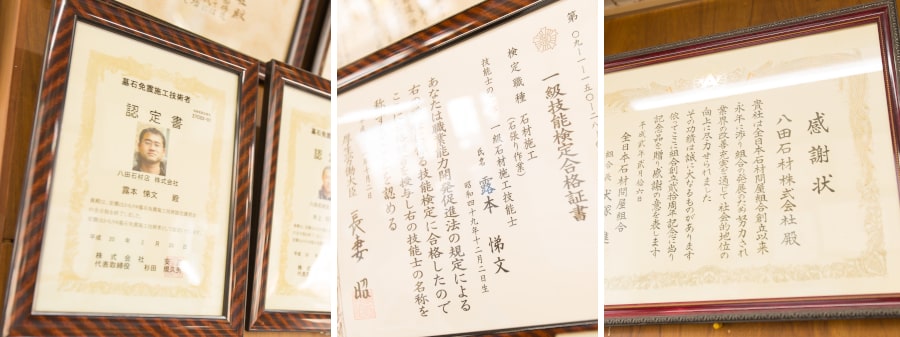 墓石免震施工技術者
認定書
八田石材店 株式会社
露本 悌文 殿
平成 20 年 2 月
株式会社 安
代表取締役 杉田
認
第〇九-一-一五〇-二
一級技能検定合格証書
検定職種 石材施工
(石張り作業)
技能士の
一級石材施工技能士
氏名 露本 悌文
昭和四十九年十二月二日生
あなたは職業能力開発促進法の規定による
右の
技能検定に合格したので
ここに
を授与し右の技能士の名称を
称す
を認める
長妻 昭
感謝状
八田石材株式会社 殿
貴社は全日本石材問屋組合創立以来
永年に渉り組合の発展のため努力され
業界の改善充実を通じて社会的地位の
向上に尽力せられました
その功績は誠に大なるものがあります
依てここに組合創立弐拾周年記念に当り
記念品を贈り感謝の意を表します
平成弐年弐月拾六日
全日本石材問屋組合
組合長